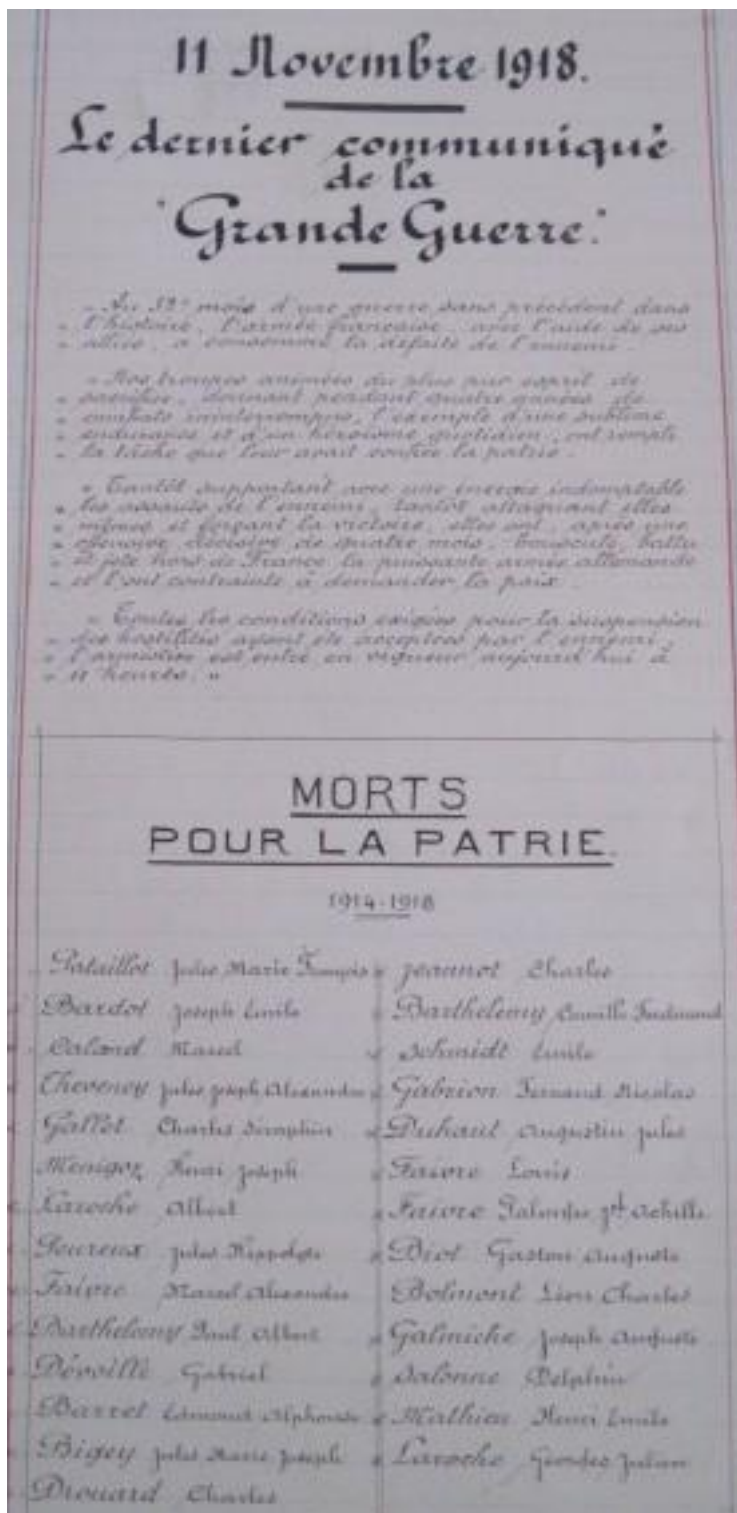 11 Novembre 1918.
Le dernier communiqué
de la
"Grande Guerre."
" Au 52e mois d'une guerre sans précédent dans
" l'histoire, l'armée française, avec l'aide de ses
" alliés, a consommé la défaite de l'ennemi.
" Nos troupes animées du plus pur esprit de
" sacrifice, donnant pendant quatre années de
" combats ininterrompus, l'exemple d'une sublime
" endurance et d'un héroïsme quotidien, ont rempli
" la tâche que leur avait confiée la patrie.
" Tantôt supportant avec une énergie indomptable
" les assauts de l'ennemi, tantôt attaquant elles
" mêmes et forçant la victoire, elles ont, après une
" offensive décisive de quatre mois, bousculé, battu
" et jeté hors de France la puissante armée allemande
" et l'ont contrainte à demander la paix.
" Toutes les conditions exigées pour la suspension
" des hostilités ayant été acceptées par l'ennemi,
" l'armistice est entré en vigueur aujourd'hui à
" 11 heures. "
MORTS
POUR LA PATRIE.
1914-1918
Pataillot Jules Marie François
Bardot Joseph Emile
Caland Marcel
Thevenoy Jules Joseph Alexandre
Gallot Charles Séraphin
Menigoz Henri Joseph
Laroche Albert
Peureux Jules Hippolyte
Faivre Marcel Alexandre
Barthelemy Paul Albert
Dévoille Gabriel
Barret Edmond Alphonse
Bigey Jules Marie Joseph
Drouard Charles
Jeannot Charles
Barthelemy Camille Ferdinand
Schmidt Emile
Gabrion Fernand Nicolas
Duhaut Augustin Jules
Faivre Louis
Faivre Jph Achille
Biot Gaston Auguste
Bolmont Léon Charles
Galmiche Joseph Auguste
Salonne Delphin
Mathieu Henri Emile
Laroche Georges Julien